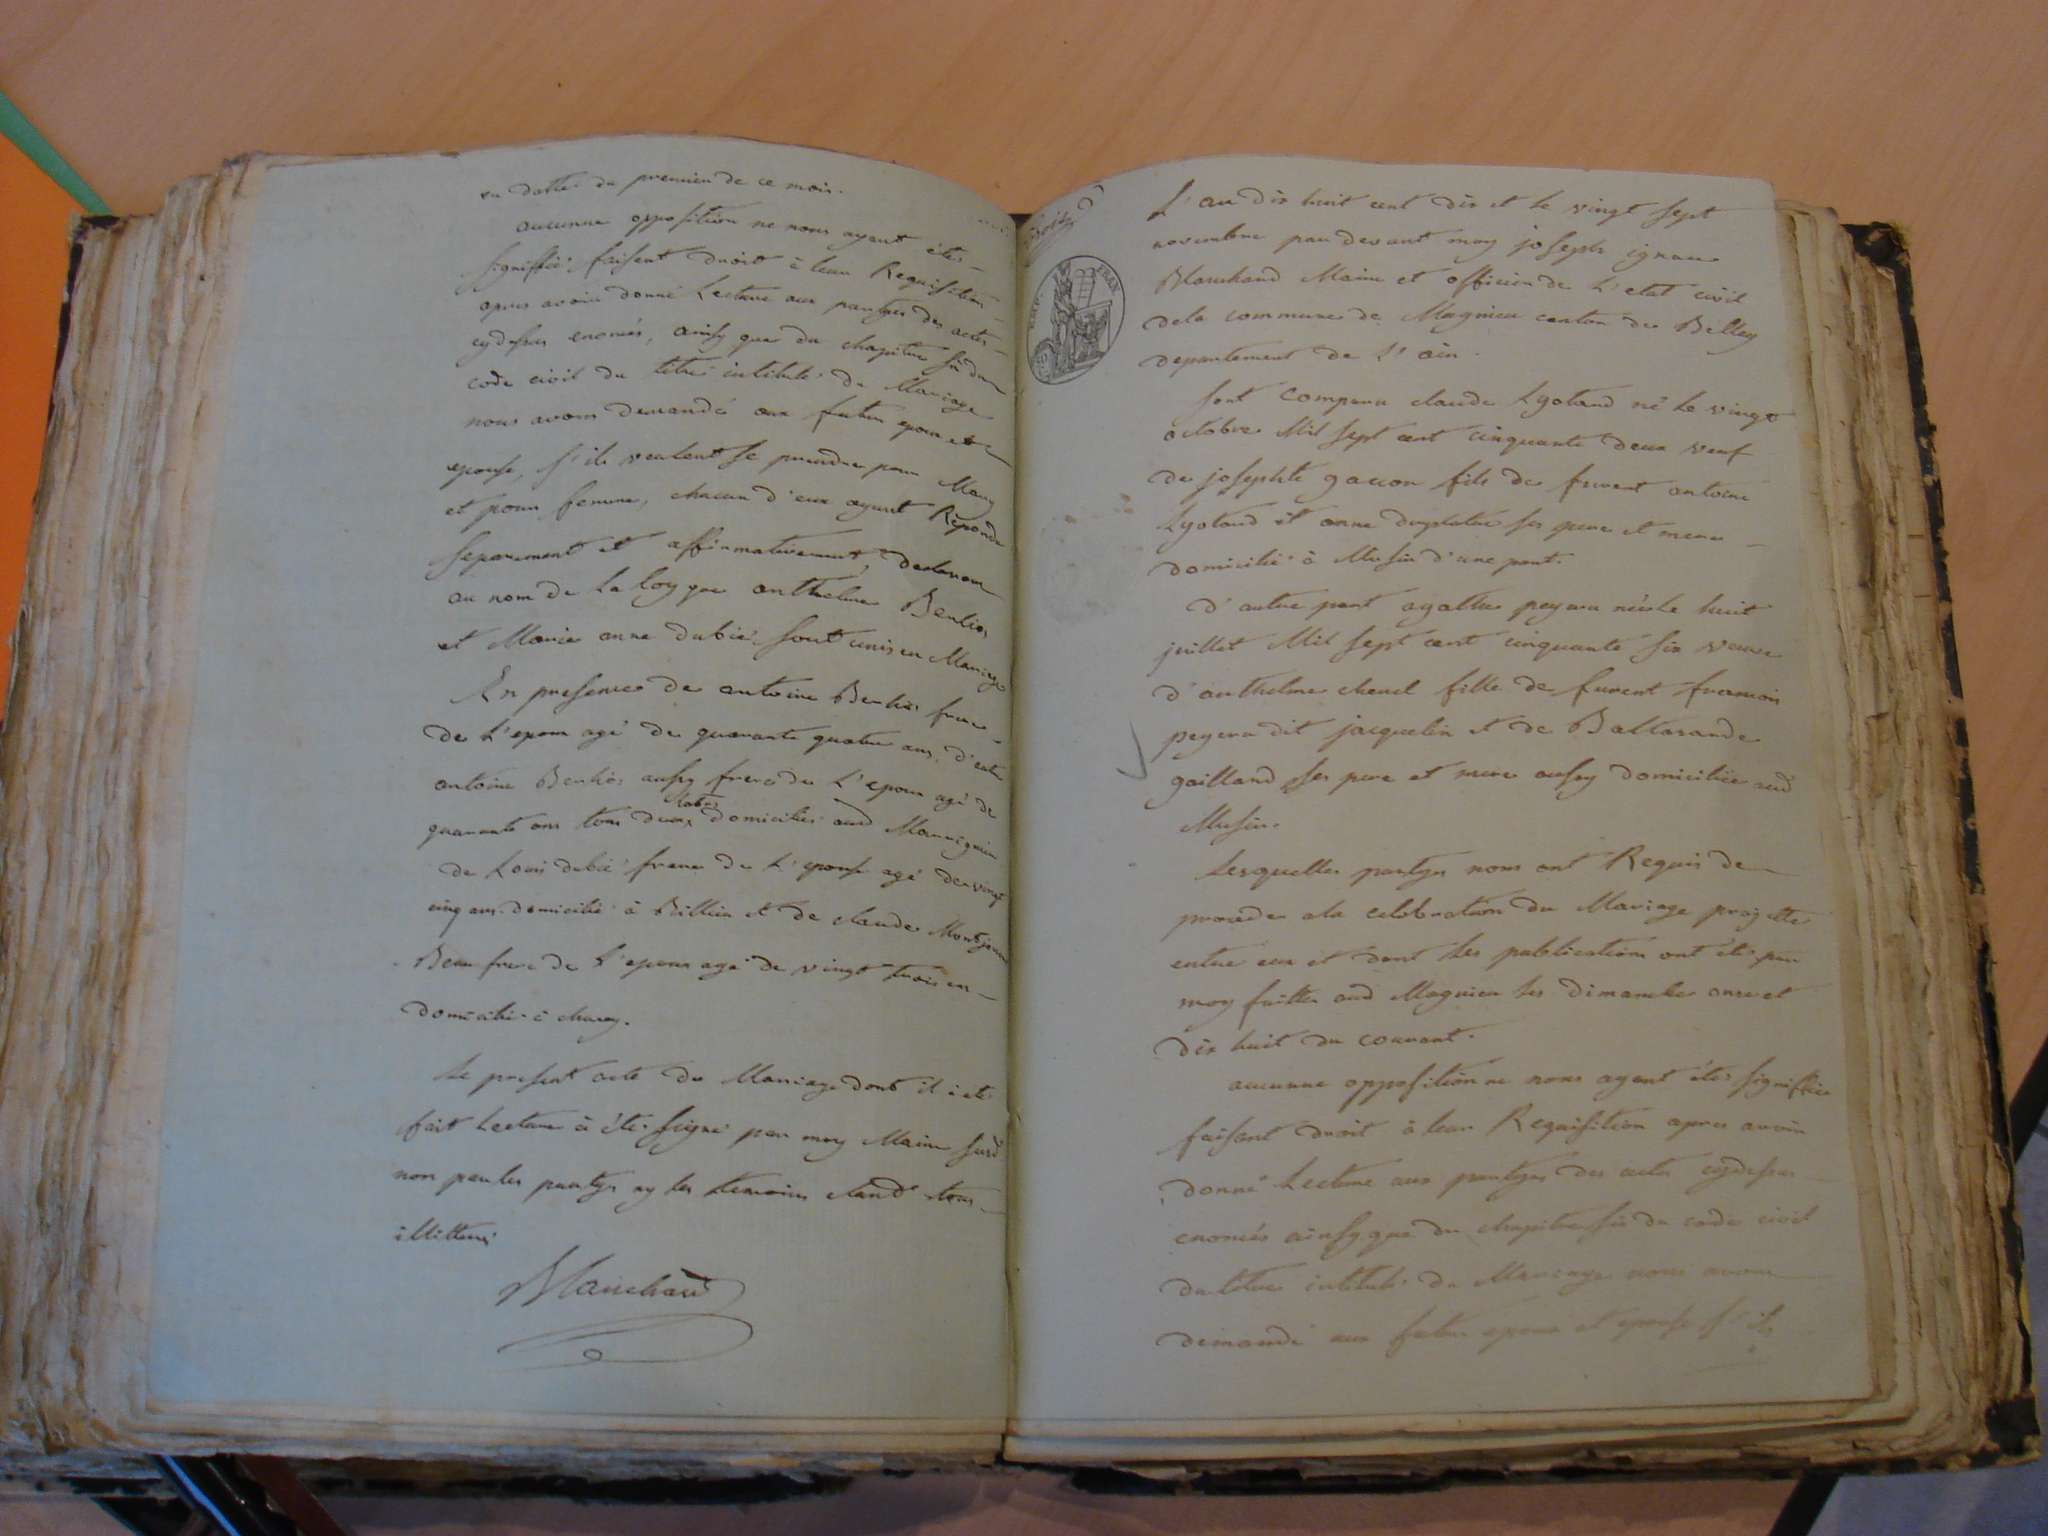 en datte du premier de ce mois.
aucunne opposition ne nous ayant étés
signiffié faisent droit à leur Requisition
apres avoir donné Lecture aux partyes des actes
cydessus enoncés, ainsy que du chapitre six du
code civil du titre intitulé du Mariage
nous avons demandé aux futur epoux et
epouse, s'ils veulent se prendre pour Mary
et pour femme, chacun d'eux ayant Repondu
separement et affirmativement, declarons
au nom de la Loy que anthelme Berlioz
et Marie anne dubié sont unis en Mariage
En presence de antoine Berlioz frere
de L'epoux agé de quarante quatre ans, d'autre
antoine Berlioz aussy frere de L'epoux agé de
quarante ans tous deux domiciliés aud
de Louis dubié frere de L'epouse agé de vingt
cinq ans domicilié à Billieu et de claude Montjean
Beau frere de L'epoux agé de vingt trois ans
domicilié à
Le present acte de Mariage dont il a été
fait Lecture à été signé par moy Maire susd
non par les partyes ny les temoins etand tous
illitteré
Blanchard
L'an dix huit cent dix et le vingt sept
novembre par devant moy joseph ignace
Blanchard Maire et officier de L'etat civil
dela commune de Magnieu canton de Belley
departement de L'ain.
sont comparu claude Lyotard né le vingt
octobre Mil sept cent cinquante deux veuf
de josephte gacon fils de furent antoine
Lyotard et anne ses pere et mere
domicilié à Musin d'une part.
D'autre part agathe peyera née le huit
juillet Mil sept cent cinquante six veuve
d'anthelme chenel fille de furent francois
peyera dit jacquelin et de Baltazarde
gaillard ses pere et mere aussy domiciliée aud
Musin.
Lesquelles partyes nous ont Requis de
proceder ala celebration du Mariage projetté
entre eux et dont les publications ont été par
moy faittes aud Magnieu les dimanche onze et
dix huit du courant.
aucunne opposition ne nous ayant étés signiffiée
faisant droit à leur Requisition apres avoir
donné Lecture aux partyes des actes cydessus
enoncés ainsy que du chapitre six du code civil
du titre intitulé du Mariage nous avons
demandé aux futur epoux et epouse s'ils